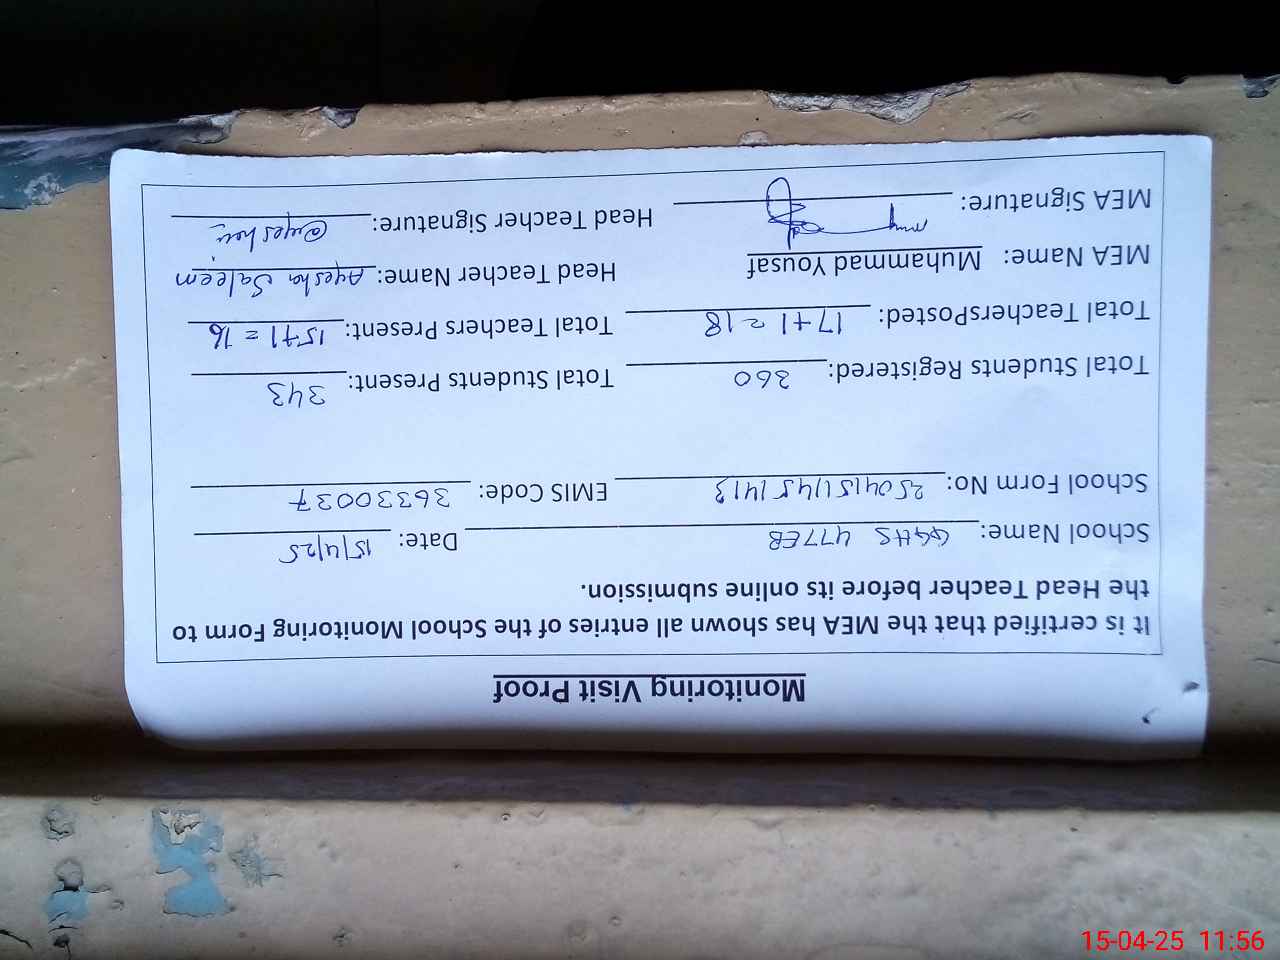 Monitoring Visit Proof
It is certified that the MEA has shown all entries of the School Monitoring Form to
the Head Teacher before its online submission.
School Name: GGHS 477EB Date: 15/4/25
School Form No: EMIS Code: 36330037
Total Students Registered: 360 Total Students Present: 343
Total TeachersPosted: 17+1=18 Total Teachers Present: 15+1=16
MEA Name: Muhammad Yousaf Head Teacher Name: Ayesha Saleem
MEA Signature: Head Teacher Signature:
15-04-25 11:56